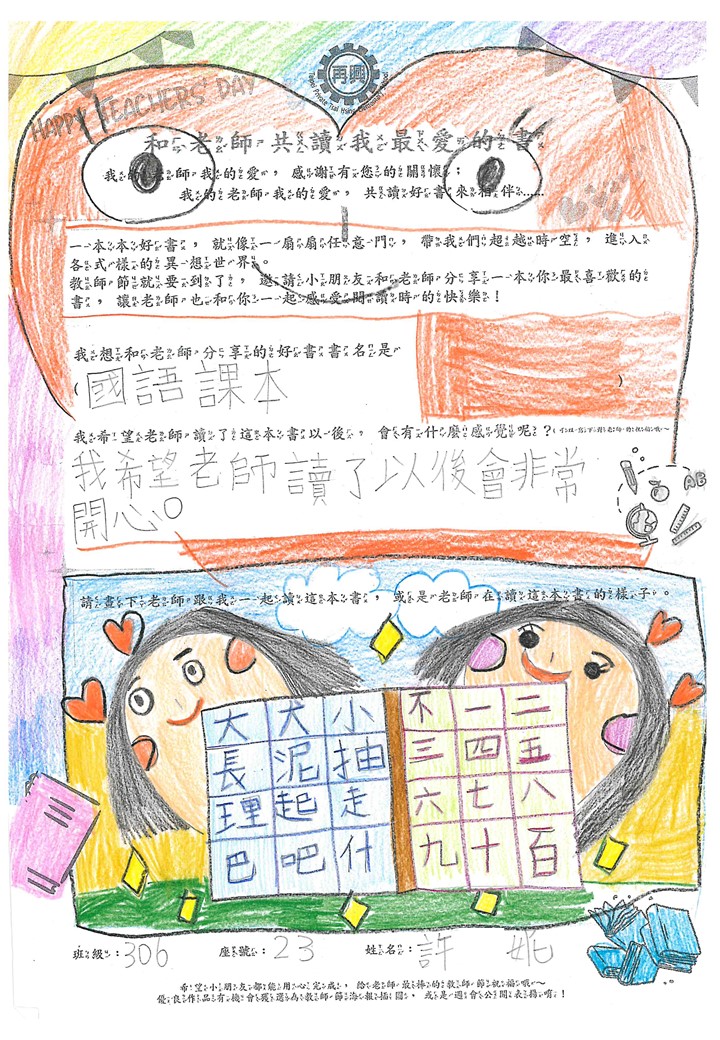 HAPPY TEACHERS' DAY
再興
Taipei Private Tsai Hsing Elementary School
和老師共讀我最愛的書
我的老師我的愛，感謝有您的關懷；
我的老師我的愛，共讀好書來相伴……
一本本好書，就像一扇扇任意門，帶我們超越時空，進入
各式樣的異想世界。
教師節就要到了，邀請小朋友和老師分享一本你最喜歡的
書，讓老師也和你一起感受閱讀時的快樂！
我想和老師分享的好書書名是
(國語課本)
我希望老師讀了這本書以後，會有什麼感覺呢？
我希望老師讀了以後會非常
開心。
請畫下老師跟我一起讀這本書，或是老師在讀這本書的樣子。
大犬小 不一二
長泥抽 三四五
理起走 六七八
巴吧什 九十百
AB
班級：306 座號：23 姓名：許 姚
希望小朋友都能用心完成，給老師最棒的教師節祝福哦～
優良作品有機會獲選為教師節海報插圖，或是週會公開表揚唷！